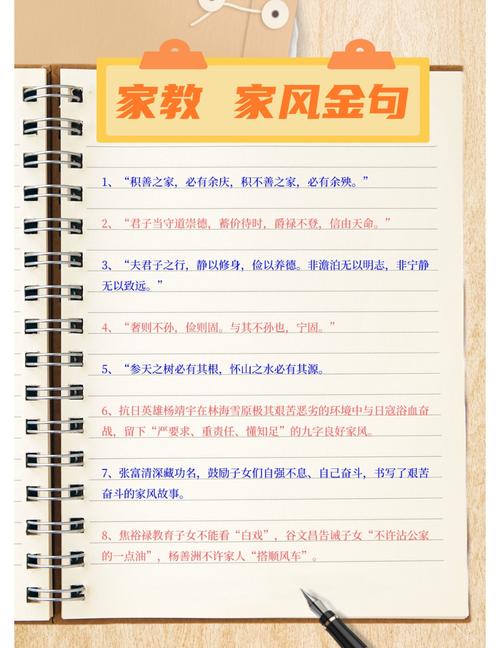 家教 家风金句
1、“积善之家，必有余庆，积不善之家，必有余殃。”
2、“君子当守道崇德，蓄价待时，爵禄不登，信由天命。”
3、“夫君子之行，静以修身，俭以养德。非澹泊无以明志，非宁静
无以致远。”
4、“奢则不孙，俭则固。与其不孙也，宁固。”
5、“参天之树必有其根，怀山之水必有其源。
6、抗日英雄杨靖宇在林海雪原极其艰苦恶劣的环境中与日寇浴血奋
战，留下“严要求、重责任、懂知足”的九字良好家风。
7、张富清深藏功名，鼓励子女们自强不息、自己奋斗，书写了艰苦
奋斗的家风故事。
8、焦裕禄教育子女不能看“白戏”，谷文昌告诫子女“不许沾公家
的一点油”，杨善洲不许家人“搭顺风车”。